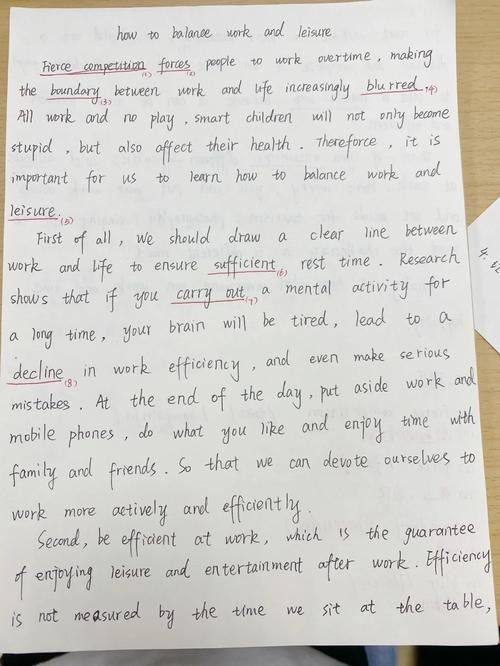 how to balance work and leisure
Fierce competition forces people to work overtime, making
(1) (2)
the boundary between work and life increasingly blurred.
(3) (4)
All work and no play, smart children will not only become
stupid, but also affect their health. Thereforce, it is
important for us to learn how to balance work and
leisure.
(5)
First of all, we should draw a clear line between
work and life to ensure sufficient rest time. Research
(6)
shows that if you carry out a mental activity for
(7)
a long time, your brain will be tired, lead to a
decline in work efficiency, and even make serious
(8)
mistakes. At the end of the day, put aside work and
mobile phones, do what you like and enjoy time with
family and friends. So that we can devote ourselves to
work more actively and efficiently.
Second, be efficient at work, which is the guarantee
of enjoying leisure and entertainment after work. Efficiency
is not measured by the time we sit at the table,